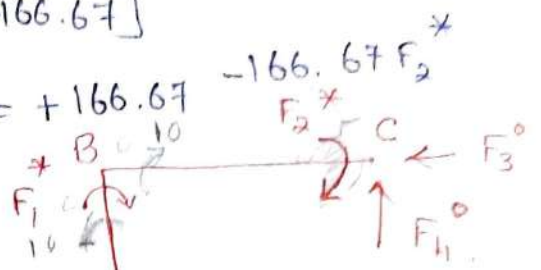 166.67]
= +166.67 -166.67 F₂*
F₂* C
B 10
F₃°
F₁*
10 F₄°